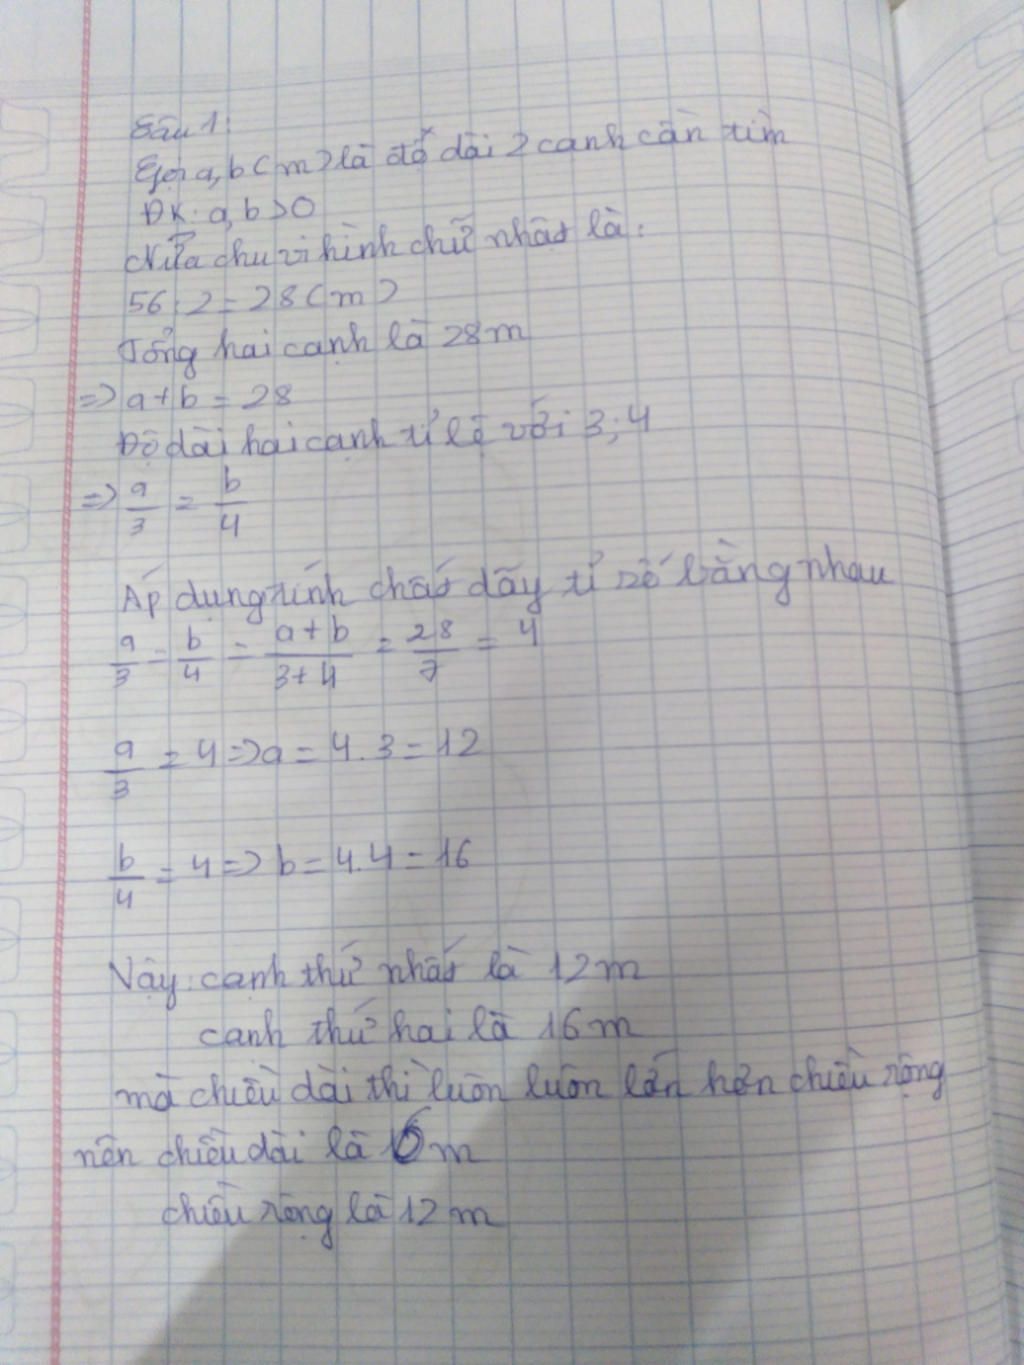 Câu 1:
Gọi a, b (m) là độ dài 2 cạnh cần tìm
ĐK: a, b > 0
Nửa chu vi hình chữ nhật là:
56 : 2 = 28 (m)
Tổng hai cạnh là 28m
=> a + b = 28
Độ dài hai cạnh tỉ lệ với 3; 4
=> a/3 = b/4
Áp dụng tính chất dãy tỉ số bằng nhau
a/3 = b/4 = (a + b)/(3 + 4) = 28/7 = 4
a/3 = 4 => a = 4.3 = 12
b/4 = 4 => b = 4.4 = 16
Vậy: cạnh thứ nhất là 12m
cạnh thứ hai là 16m
mà chiều dài thì luôn luôn lớn hơn chiều rộng
nên chiều dài là 16m
chiều rộng là 12m